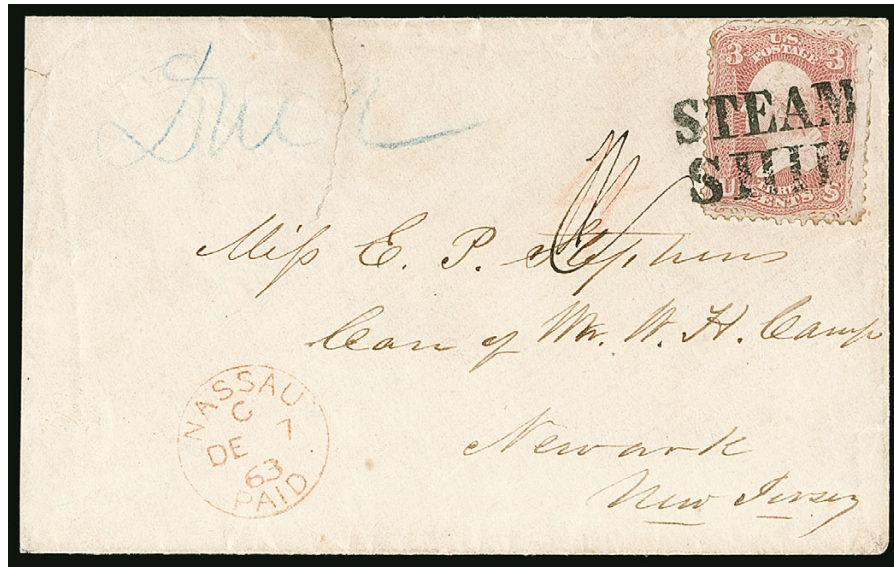 Due 2
3 U.S. POSTAGE 3
STEAM
SHIP
CENTS
Miss E. P. Stephens
Care of Mr. W. H. Camp
Newark
New Jersey
NASSAU
C
DE 7
63
PAID